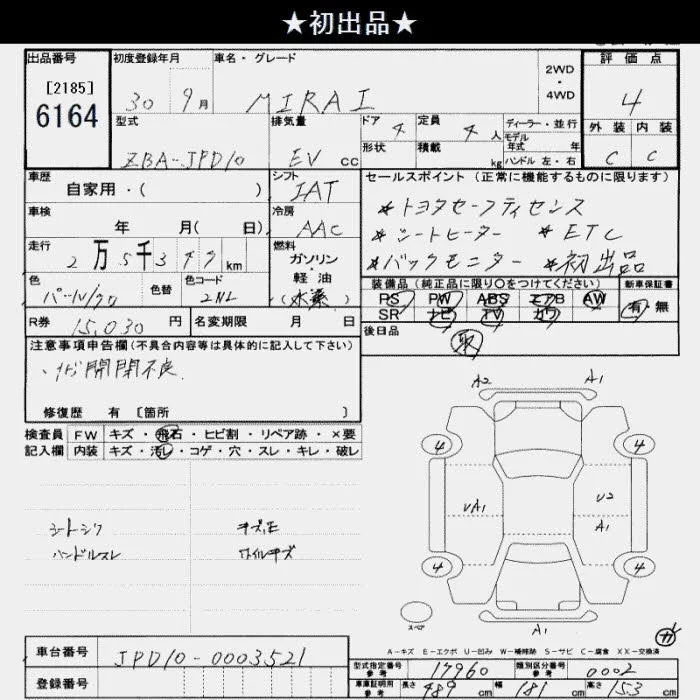 ★初出品★
出品番号 初度登録年月 車名・グレード 2WD・4WD 評価点
[2185]
6164 30 9月 MIRAI 4
型式 排気量 ドア 4 定員 4人 ディーラー・並行 外装 内装
モデル年式 年
ZBA-JPD10 EV cc 形状 積載 kg ハンドル 左・右 C C
車歴 シフト セールスポイント (正常に機能するものに限ります)
自家用・( ) IAT *トヨタセーフティセンス
車検 冷房
年 月( 日) AAC *シートヒーター *ETC
走行 燃料
2万5千377km ガソリン・軽油 *バックモニター *初出品
色 色替 色コード (水素) 装備品(純正品に限り○をつけてください) 新車保証書
パール/クロ 2NL PS PW ABS エアB AW 有・無
SR ナビ TV カワ
R券 15,030円 名変期限 月 日 後日品
注意事項申告欄(不具合内容等は具体的に記入して下さい) 取
、ナビ開閉不良
修復歴 有 [箇所 ]
検査員 FW キズ・飛石・ヒビ割・リペア跡・×要
記入欄 内装 キズ・汚レ・コゲ・穴・スレ・キレ・破レ
A2 A1
4 4
UA1 U2
A1
4 4
シートシワ キズ凹
ハンドルスレ ホイルキズ
スペア A1 ガ
A-キズ E-エクボ U-凹み W-補修跡 S-サビ C-腐食 XX-交換済
車台番号 JPD10-0003521
型式指定番号 参考 17960 類別区分番号 参考 0002
登録番号
車庫証明用 参考 長さ 489cm 幅 181cm 高さ 153cm